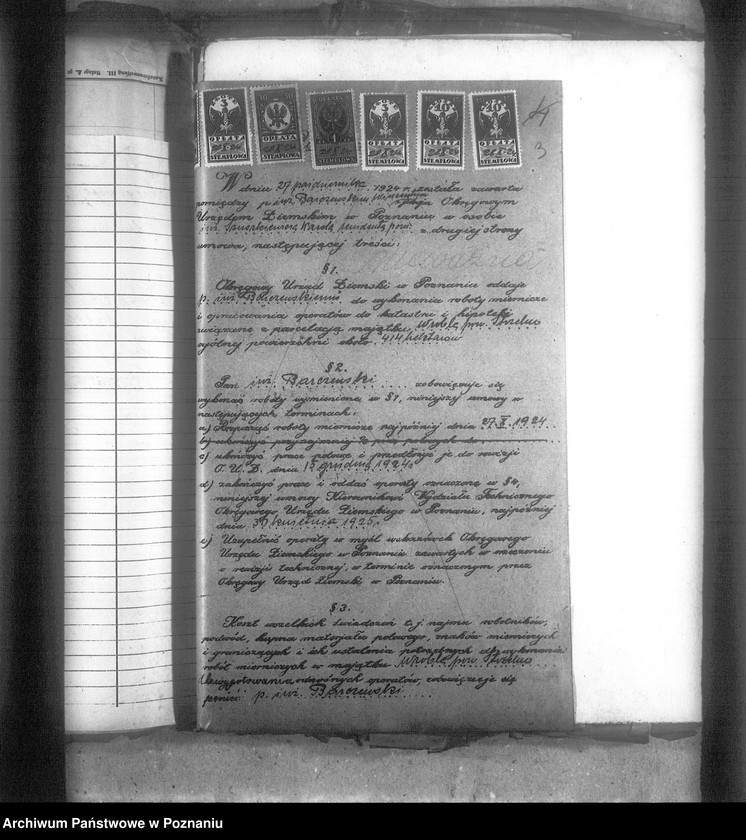 3 OPŁATA STEMPLOWA
50 50 OPŁATA STEMPLOWA
OPŁATA 1 STEMPLOWA
3 OPŁATA STEMPLOWA
20 OPŁATA STEMPLOWA
20 OPŁATA STEMPLOWA
3
W dniu 27 października 1924 r. została zawarta
pomiędzy p. inż. Barczewskim a Okręgowym
Urzędem Ziemskim w Poznaniu w osobie
inż. Karola z drugiej strony
umowa, następującej treści:
§ 1.
Okręgowy Urząd Ziemski w Poznaniu oddaje
p. inż. Barczewskiemu do wykonania roboty miernicze
i opracowania operatów do katastru i hipoteki
związane z parcelacją majątku Wróble pow. Strzelno
ogólnej powierzchni około 414 hektarów
§ 2.
Pan inż. Barczewski zobowiązuje się
wykonać roboty wymienione w § 1, niniejszej umowy w
następujących terminach:
a) Rozpocząć roboty miernicze najpóźniej dnia 27. X. 1924
b) ukończyć przynajmniej prac polnych do
c) ukończyć prace polowe i przedłożyć je do rewizji
O. U. Z. dnia 15 grudnia 1924.
d) zakończyć prace i oddać operaty oznaczone w § 4,
niniejszej umowy Kierownikowi Wydziału Technicznego
Okręgowego Urzędu Ziemskiego w Poznaniu, najpóźniej
dnia 30 kwietnia 1925.
e) Uzupełnić operaty w myśl wskazówek Okręgowego
Urzędu Ziemskiego w Poznaniu zawartych w orzeczeniu
o rewizji technicznej, w terminie oznaczonym przez
Okręgowy Urząd Ziemski w Poznaniu.
§ 3.
Koszt wszelkich świadczeń t. j. najmu robotników,
podwód, kupna materjału polowego, znaków mierniczych
i granicznych i ich ustalenia potrzebnych dla wykonania
robót mierniczych w majątku Wróble pow. Strzelno
i przygotowania odnośnych operatów, zobowiązuje się
ponieść p. inż. Barczewski
Archiwum Państwowe w Poznaniu